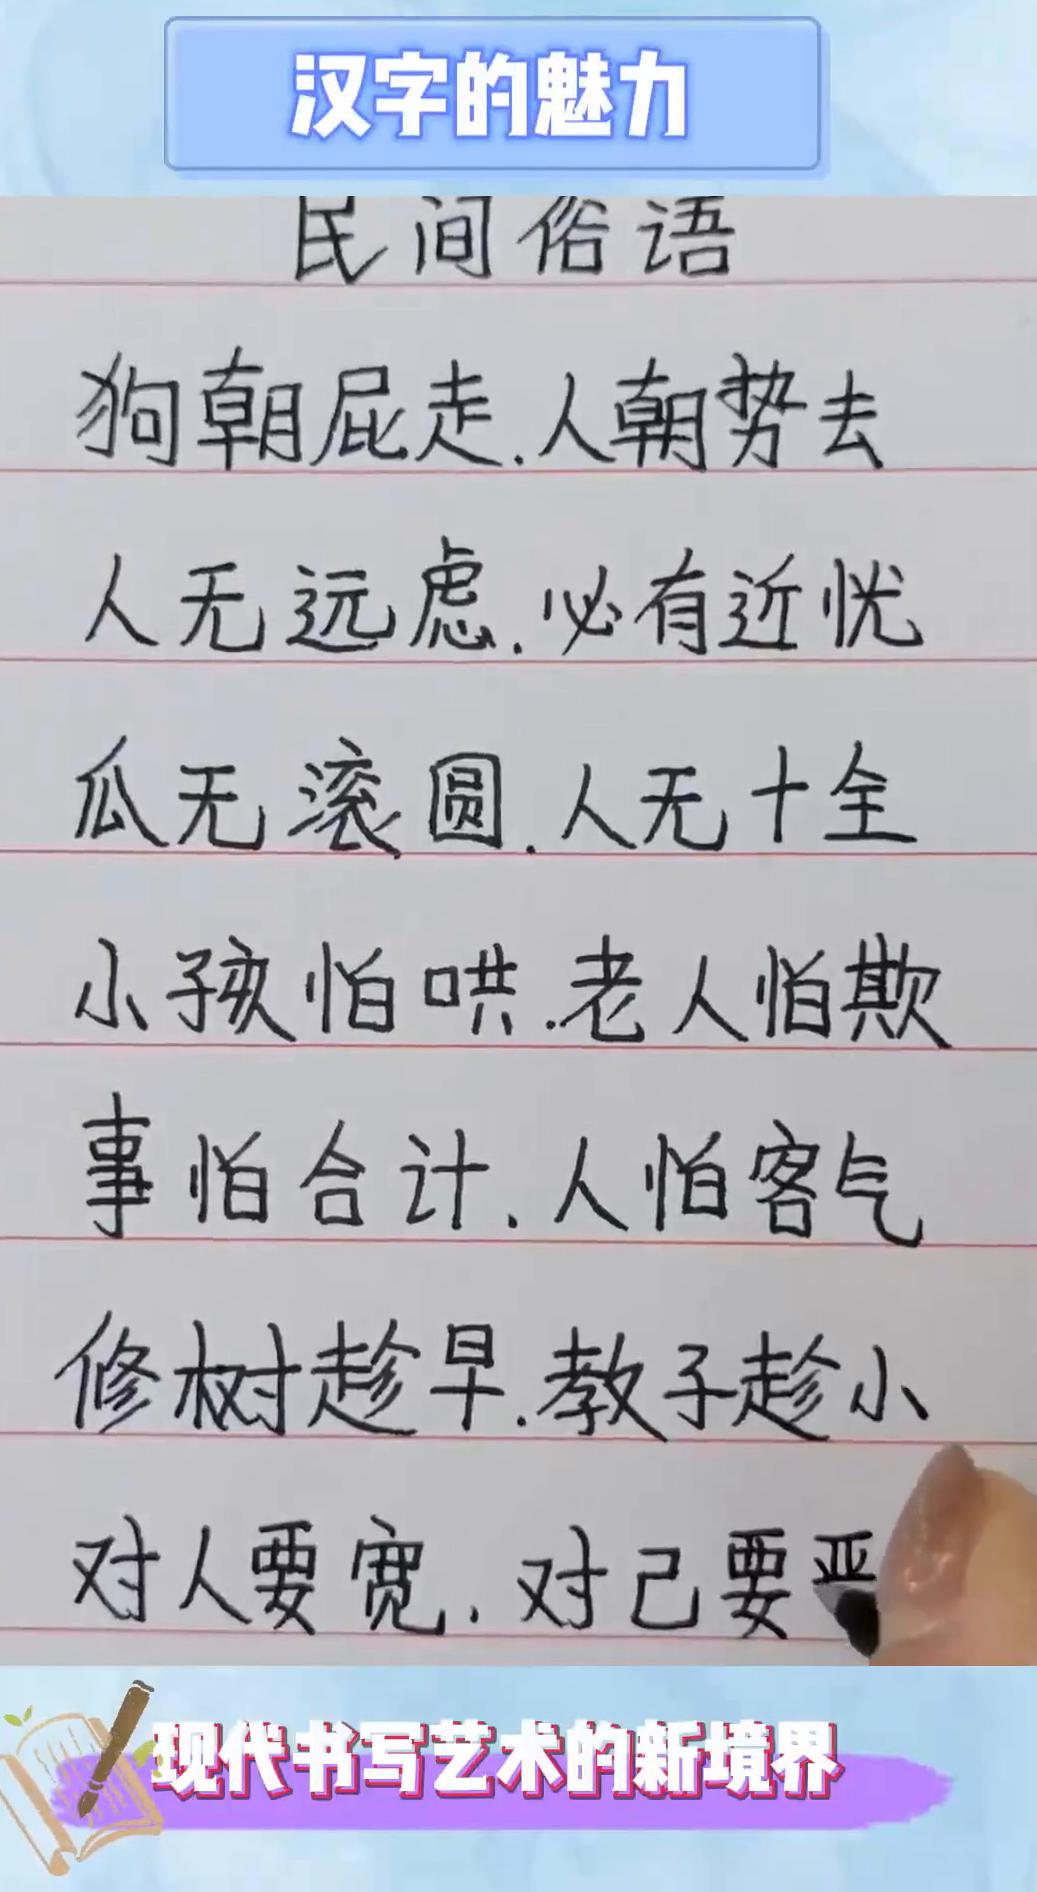 汉字的魅力
民间俗语
狗朝屁走.人朝势去
人无远虑.必有近忧
瓜无滚圆.人无十全
小孩怕哄.老人怕欺
事怕合计.人怕客气
修树趁早.教子趁小
对人要宽.对己要严
现代书写艺术的新境界